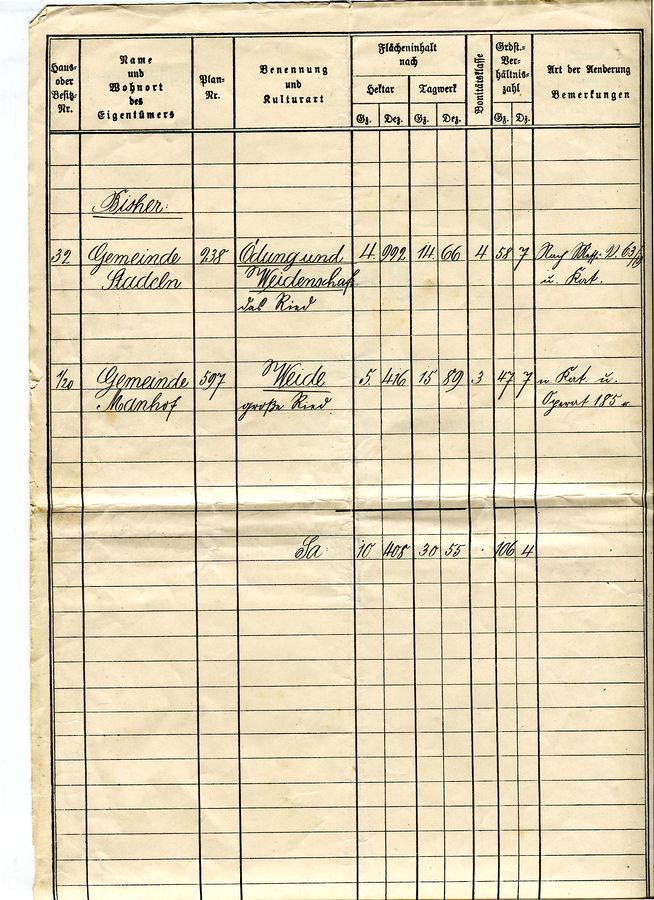 Haus- oder Besitz- Nr.
Name und Wohnort des Eigentümers
Plan- Nr.
Benennung und Kulturart
Flächeninhalt nach
Hektar
Tagwerk
Gz. Dez. Gz. Dez.
Bonitätsklasse
Grdst.- Ver- hältnis- zahl
Gz. Dz.
Art der Aenderung
Bemerkungen
Bisher:
32 Gemeinde 238 Ödung und 4. 992 14. 66 4 58 7 Nach Mess. V. 63/
Stadeln Weidenschaft u. Kat.
das Ried
1/20 Gemeinde 597 Weide 5. 416 15 89 .3 47 7 n Kat. u.
Manhof große Ried. Operat 185
Sa: 10 408 30 55 . 106 4